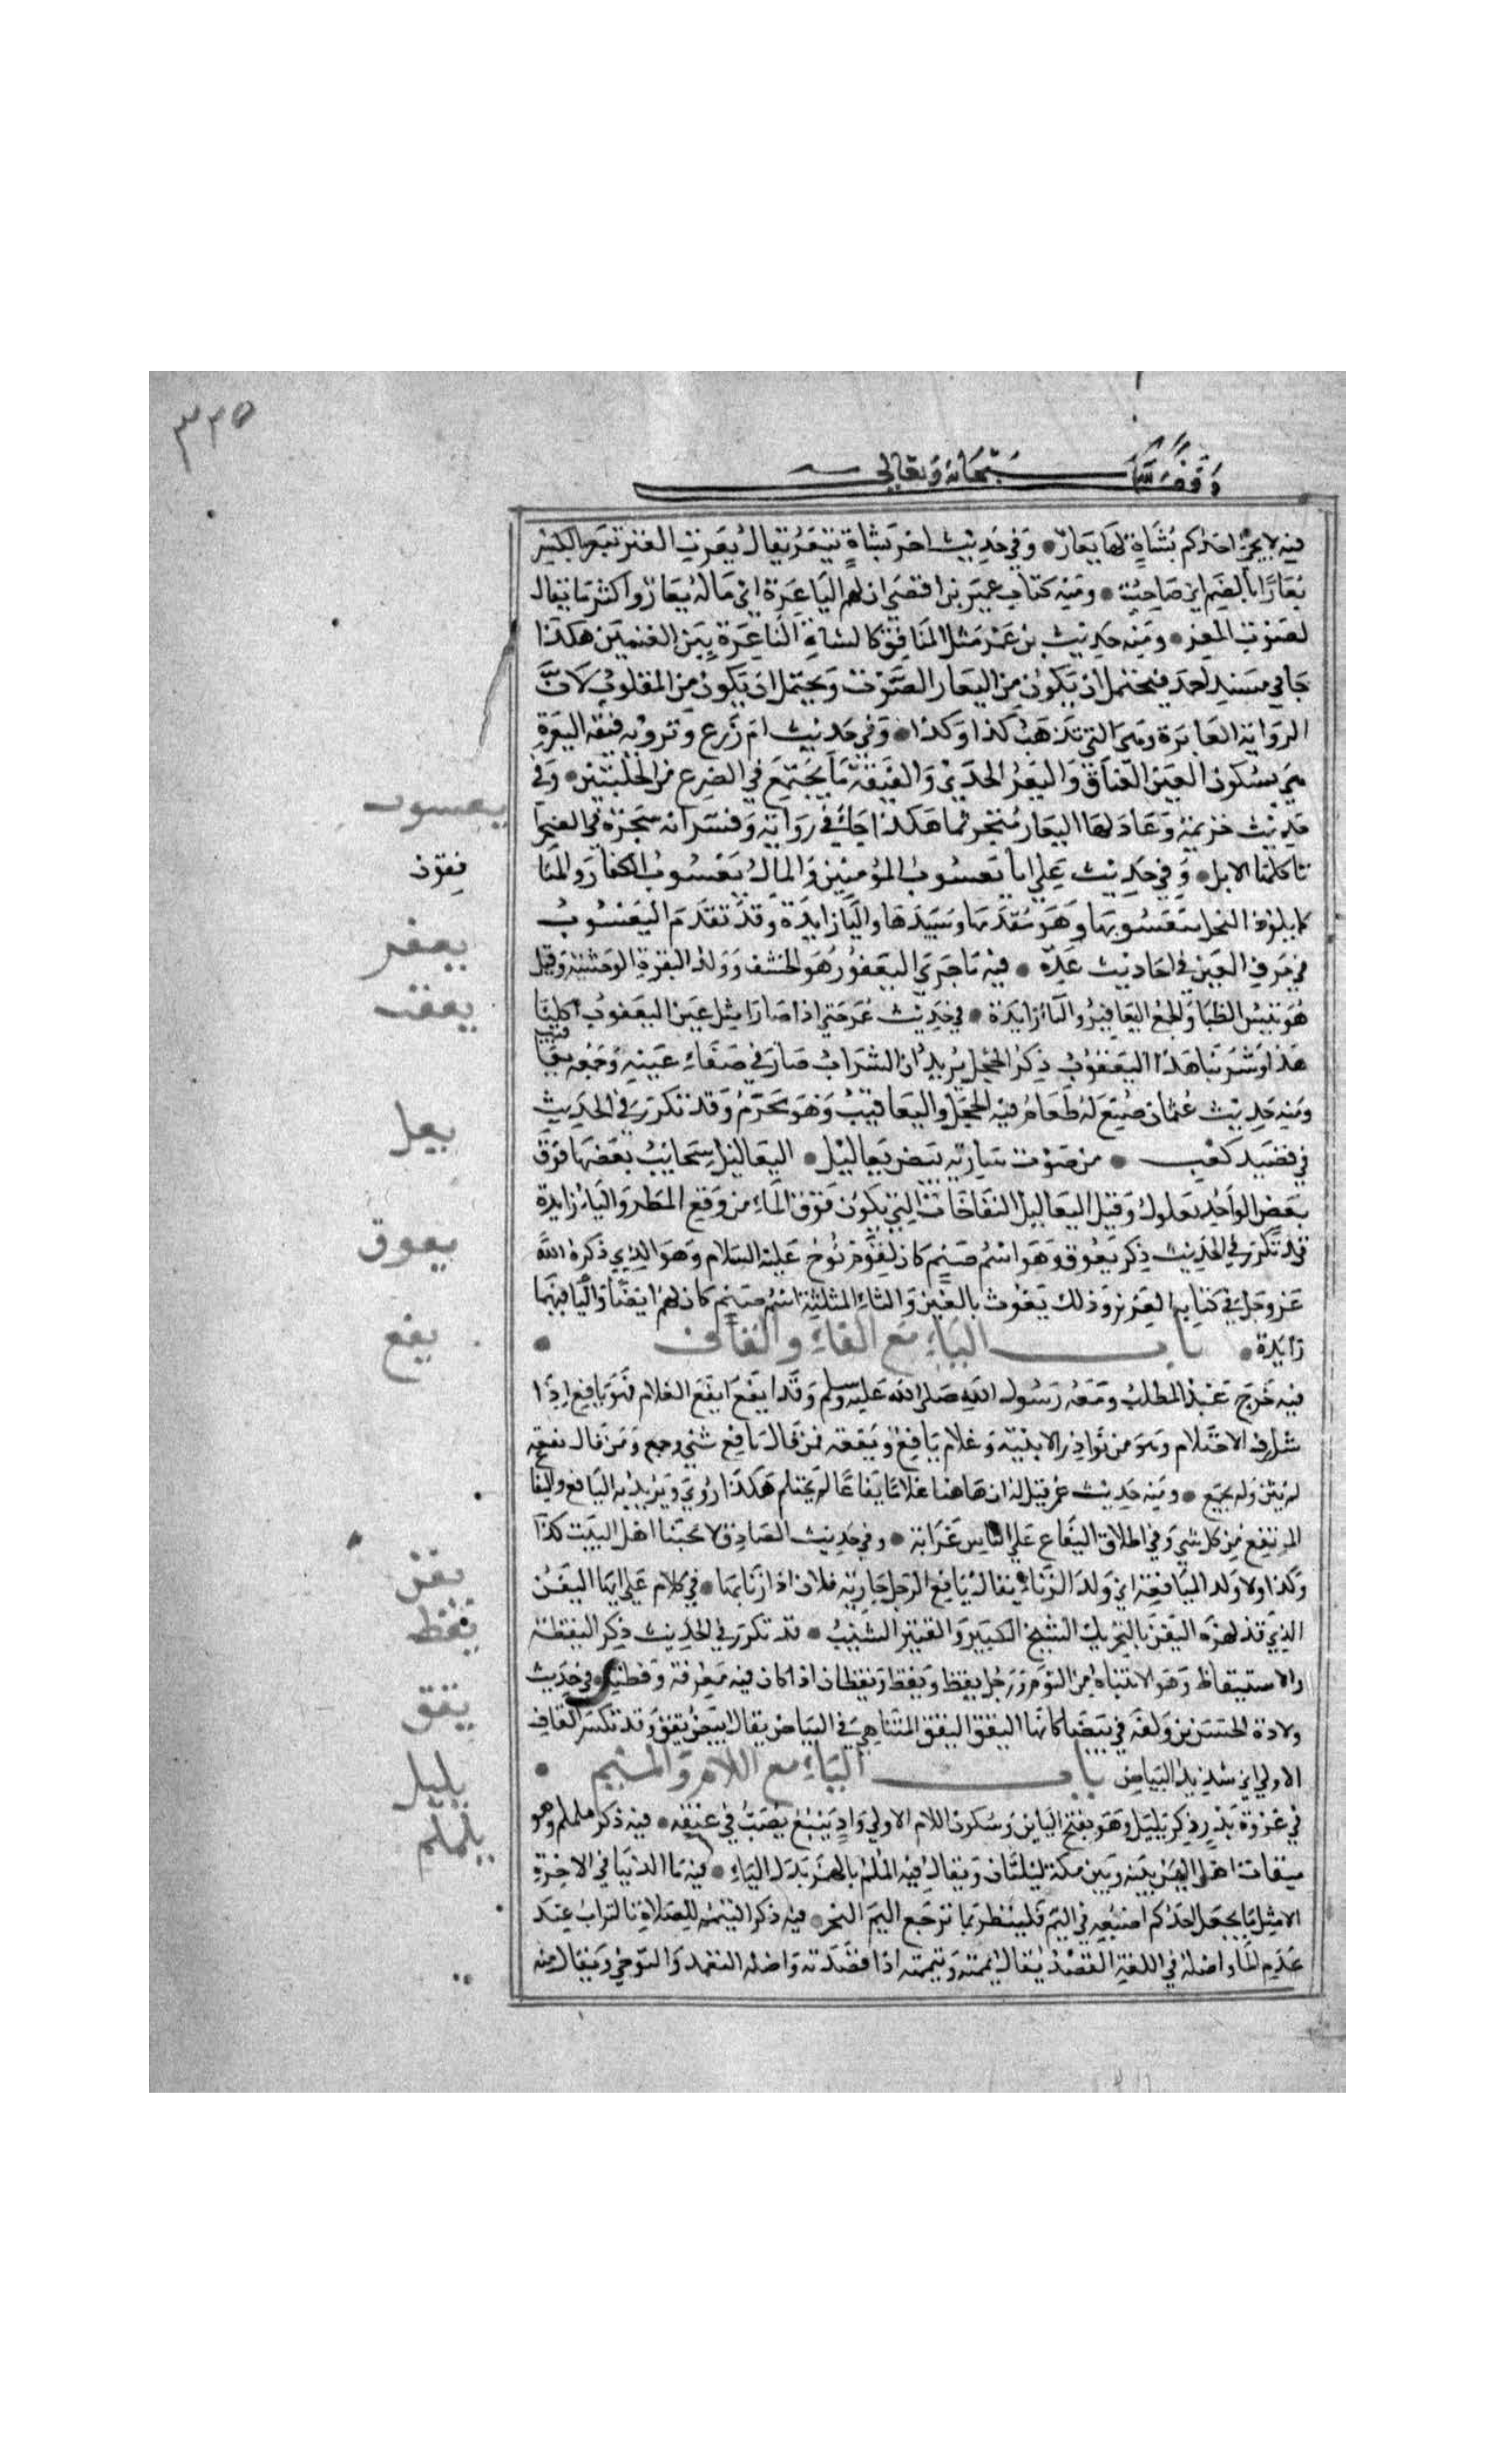 ٣٣٥
وقف لله سبحانه وتعالى
فيه لا يجئ احدكم بشاة لها يعار وفي حديث اخر بشاة تيعر يقال يعرت العنز تيعر بالكسر
يعارا بالضم اي صاحت ومنه كتاب عمير بن افصى ان لهم الياعرة اي ماله يعار واكثر ما يقال
لصوت المعز ومنه حديث بن عمر مثل المنافق كالشاة الياعرة بين الغنمين هكذا
جا في مسند احمد فيحتمل ان يكون من اليعار الصوت ويحتمل ان يكون من المقلوب لان
الرواية العايرة وهي التي تذهب كذا وكذا وفي حديث ام زرع وترويه فيقة اليعرة
هي بسكون العين العناق واليعر الجدي والفيقة ما يجتمع في الضرع من الحلبتين وفي
حديث خزيمة وعاد لها اليعار مجرنثما هكذا جا في رواية وفسر انه شجرة في الصحرا
تاكلها الابل وفي حديث علي انا يعسوب المؤمنين والمال يعسوب الكفار والمنا
كما يلوذ النحل بيعسوبها وهو مقدمها وسيدها واليا زايدة وقد تقدم اليعسوب
في حرف العين في احاديث عدة فيه ما جرى اليعفور هو الخشف وولد البقرة الوحشية وقيل
هو تيس الظبا والجمع اليعافير والياء زايدة في حديث عمر حتى اذا صار مثل عين اليعقوب اكلنا
هذا وشربنا هذا اليعقوب ذكر الحجل يريد ان الشراب صار في صفاء عينه وجمعه يعا
قيب
ومنه حديث عثمان صنع له طعام فيه الحجل واليعاقيب وهو محرم وقد تكرر في الحديث
في قصيد كعب من صوت سارية بيض يعاليل اليعاليل سحايب بعضها فوق
بعض الواحد يعلول وقيل اليعاليل النفاخات التي تكون فوق الماء من وقع المطر والياء زايدة
قد تكرر في الحديث ذكر يعوق وهو اسم صنم كان لقوم نوح عليه السلام وهو الذي ذكره الله
عز وجل في كتابه العزيز وذلك يغوث بالغين والثاء المثلثة اسم صنم كان لهم ايضا واليا فيهما
زايدة باب الياء مع الفاء والقاف
فيه خرج عبد المطلب ومعه رسول الله صلى الله عليه وسلم وقد ايفع ايفع الغلام فهو يافع اذا
شارف الاحتلام وهو من نوادر الابنية وغلام يافع ويفعة فمن قال يافع ثنى وجمع ومن قال يفعة
لم يثن ولم يجمع ومنه حديث عمر قيل له ان هاهنا غلاما يفاعا لم يحتلم هكذا روي ويريد به اليافع واليفا
المرتفع من كل شي وفي اطلاق اليفاع على الناس غرابة وفي حديث الصادق لا يحبنا اهل البيت كذا
وكذا ولا ولد الميافعة اي ولد الزناء يقال يافع الرجل جارية فلان اذا زنا بها في كلام علي ايها اليفن
الذي قد لهزه اليفن بالتحريك الشيخ الكبير والقتير الشيب قد تكرر في الحديث ذكر اليقظة
والاستيقاظ وهو الانتباه من النوم ورجل يقظ ويقظ ويقظان اذا كان فيه معرفة وفطنة في حديث
ولادة الحسن بن علي ولفه في بيضا كانها اليقق اليقق المتناهي في البياض يقال ابيض يقق وقد تكسر القاف
الاولى اي شديد البياض باب الياء مع اللام والميم
في غزوة بدر ذكر يليل وهو بفتح اليائين وسكون اللام الاولى واد ينبع يصب في غيقة فيه ذكر يلملم وهو
ميقات اهل اليمن بينه وبين مكة ليلتان ويقال فيه الملم بالهمز بدل الياء فيه ما الدنيا في الاخرة
الا مثل ما يجعل احدكم اصبعه في اليم فلينظر بما ترجع اليم البحر فيه ذكر التيمم للصلاة بالتراب عند
عدم الما واصله في اللغة القصد يقال يممته وتيممته اذا قصدته واصله التعمد والتوخي ويقال منه
يعسوب
يعفر
يعقب
يعل
يعوق
يفع
يفن
يقظ
يقق
يليل
يلملم